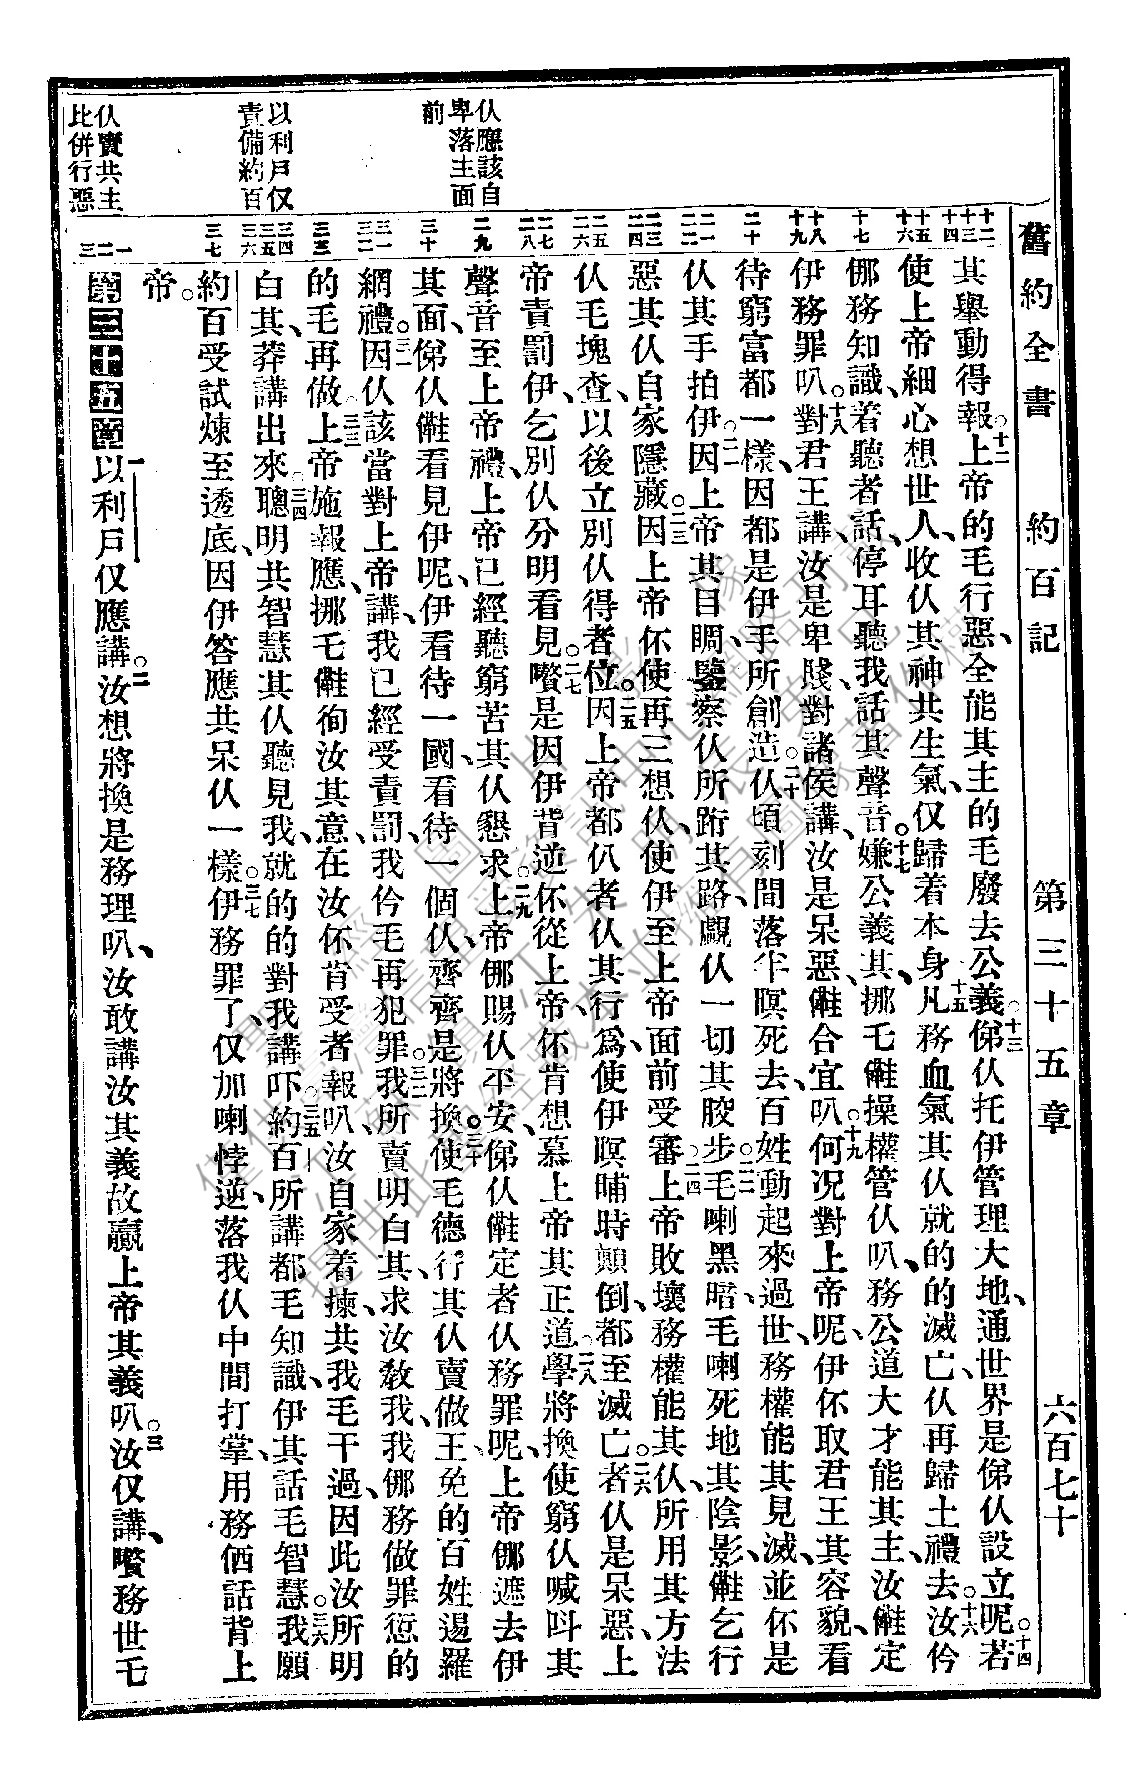 舊約全書　約百記　第三十五章　六百七十
仅應該自
卑落主面
前
以利戶仅
責備約百
仅賣共主
比併行惡
十二
十三
十四
十五
十六
十七
十八
十九
二十
二一
二二
二三
二四
二五
二六
二七
二八
二九
三十
三一
三二
三三
三四
三五
三六
三七
一
二
三
其舉動得報、○十二上帝的毛行惡、全能其主的毛廢去公義。○十三俤仅托伊管理大地、通世界是俤仅設立呢。○十四若
使上帝細心想世人、收仅其神共生氣仅歸着本身、○十五凡務血氣其仅就的的滅亡、仅再歸土禮去。○十六汝仱
㑚務知識、着聽者話、停耳聽我話其聲音。○十七嫌公義其、挪乇㒕操權管仅叭、務公道大才能其主、汝㒕定
伊務罪叭。○十八對君王講、汝是卑賤、對諸侯講、汝是呆惡、㒕合宜叭。○十九何况對上帝呢、伊伓取君王其容貌、看
待窮富都一樣、因都是伊手所創造。○二十仅頃刻間落半暝死去、百姓動起來過世、務權能其見滅、並伓是
仅其手拍伊。○二一因上帝其目睭、鑒察仅所跨其路、覷仅一切其骹步。○二二毛喇黑暗、毛喇死地其陰影、㒕乞行
惡其仅自家隱藏。○二三因上帝伓使再三想仅、使伊至上帝面前受審。○二四上帝敗壞務權能其仅、所用其方法
仅毛塊查、以後立別仅得者位。○二五因上帝都仈者仅其行爲、使伊暝晡時顛倒、都至滅亡。○二六者仅是呆惡、上
帝責罰伊、乞別仅分明看見。○二七嚽是因伊背逆伓從上帝、伓肯想慕上帝其正道學。○二八將換使窮仅喊呌其
聲音至上帝禮、上帝已經聽窮苦其仅懇求。○二九上帝㑚賜仅平安、俤仅㒕定者仅務罪呢、上帝㑚遮去伊
其面、俤仅㒕看見伊呢、伊看待一國看待一個仅齊齊是將換。○三十使毛德行其仅賣做王、免的百姓遏羅
網禮。○三一因仅該當對上帝講、我已經受責罰、我仱毛再犯罪。○三二我所賣明白其、求汝教我、我㑚務做罪愆的
的毛再做。○三三上帝施報應、挪乇㒕徇汝其意、在汝伓肯受者報叭、汝自家着揀、共我毛干過、因此汝所明
白其、莽講出來。○三四聰明共智慧其仅聽見我、就的的對我講吓、○三五約百所講都毛知識、伊其話毛智慧。○三六我願
約百受試煉至透底、因伊答應共呆仅一樣。○三七伊務罪了、仅加喇悖逆、落我仅中間打掌、用務価話背上
帝。
第三十五章 一以利戶仅應講、○二汝想將換是務理叭、汝敢講汝其義故贏上帝其義叭。○三汝仅講、嚽務世乇